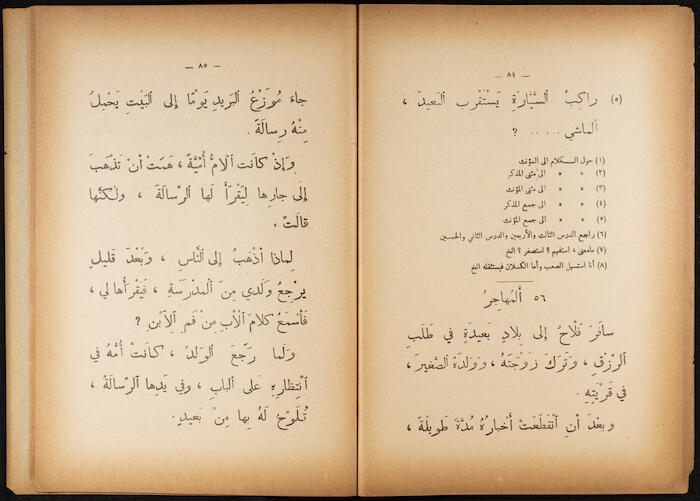 — ٨٤ —
(٥) راكِبُ السَّيَّارَةِ يَسْتَقْرِب البَعيدَ ،
الماشي .. .. .. ؟
(١) حول الكلام الى المؤنث
(٢) » » الى مثنى المذكر
(٣) » » الى مثنى المؤنث
(٤) » » الى جمع المذكر
(٥) » » الى جمع المؤنث
(٦) راجع الدرس الثالث والأربعين والدرس الثاني والخمسين
(٧) مامعنى ، استفهم ؟ استصغر ؟ الخ
(٨) أنا استسهل الصعب وأما الكسلان فيستثقله الخ
٥٦ ألمُهاجِرُ
سافَرَ فَلاَّحٌ إلى بِلادٍ بَعيدَةٍ في طَلَبِ
الرِّزْقِ ، وتَرَكَ زَوْجَتَهُ ، ووَلَدَهُ الصَّغيرَ ،
في قَرْيَتِهِ .
وبعْدَ أنِ ٱنْقَطَعَتْ أخْبارُهُ مُدَّةً طَويلَةً ،
— ٨٥ —
جاءَ مُوَزِّعُ البَريدِ يَوْمًا إلى البَيْتِ يَحْمِلُ
مِنْهُ رِسالَةً .
وَإذْ كانَتِ الاُمُّ أُمِّيَّةً ، هَمَّتْ أنْ تَذْهَبَ
إلى جارِها لِيَقْرَأَ لَها الرِّسالَةَ ، ولٰكِنَّها
قالَتْ .
لِماذا أذْهَبُ إلى النَّاسِ ، وَبَعْدَ قَليلٍ
يَرْجِعُ وَلَدي مِنَ المَدْرَسَةِ ، فَيَقْرَأُها لي ،
فَأسْمَعُ كَلامَ الأَبِ مِنْ فَمِ الِابْنِ ؟
وَلَما رَجَعَ الوَلَدُ ، كانَتْ أُمُّهُ في
ٱنْتِظارِهِ عَلى البابِ ، وفي يَدِها الرِّسالَةُ ،
تُلَوِّحُ لَهُ بِها مِنْ بَعيدٍ .